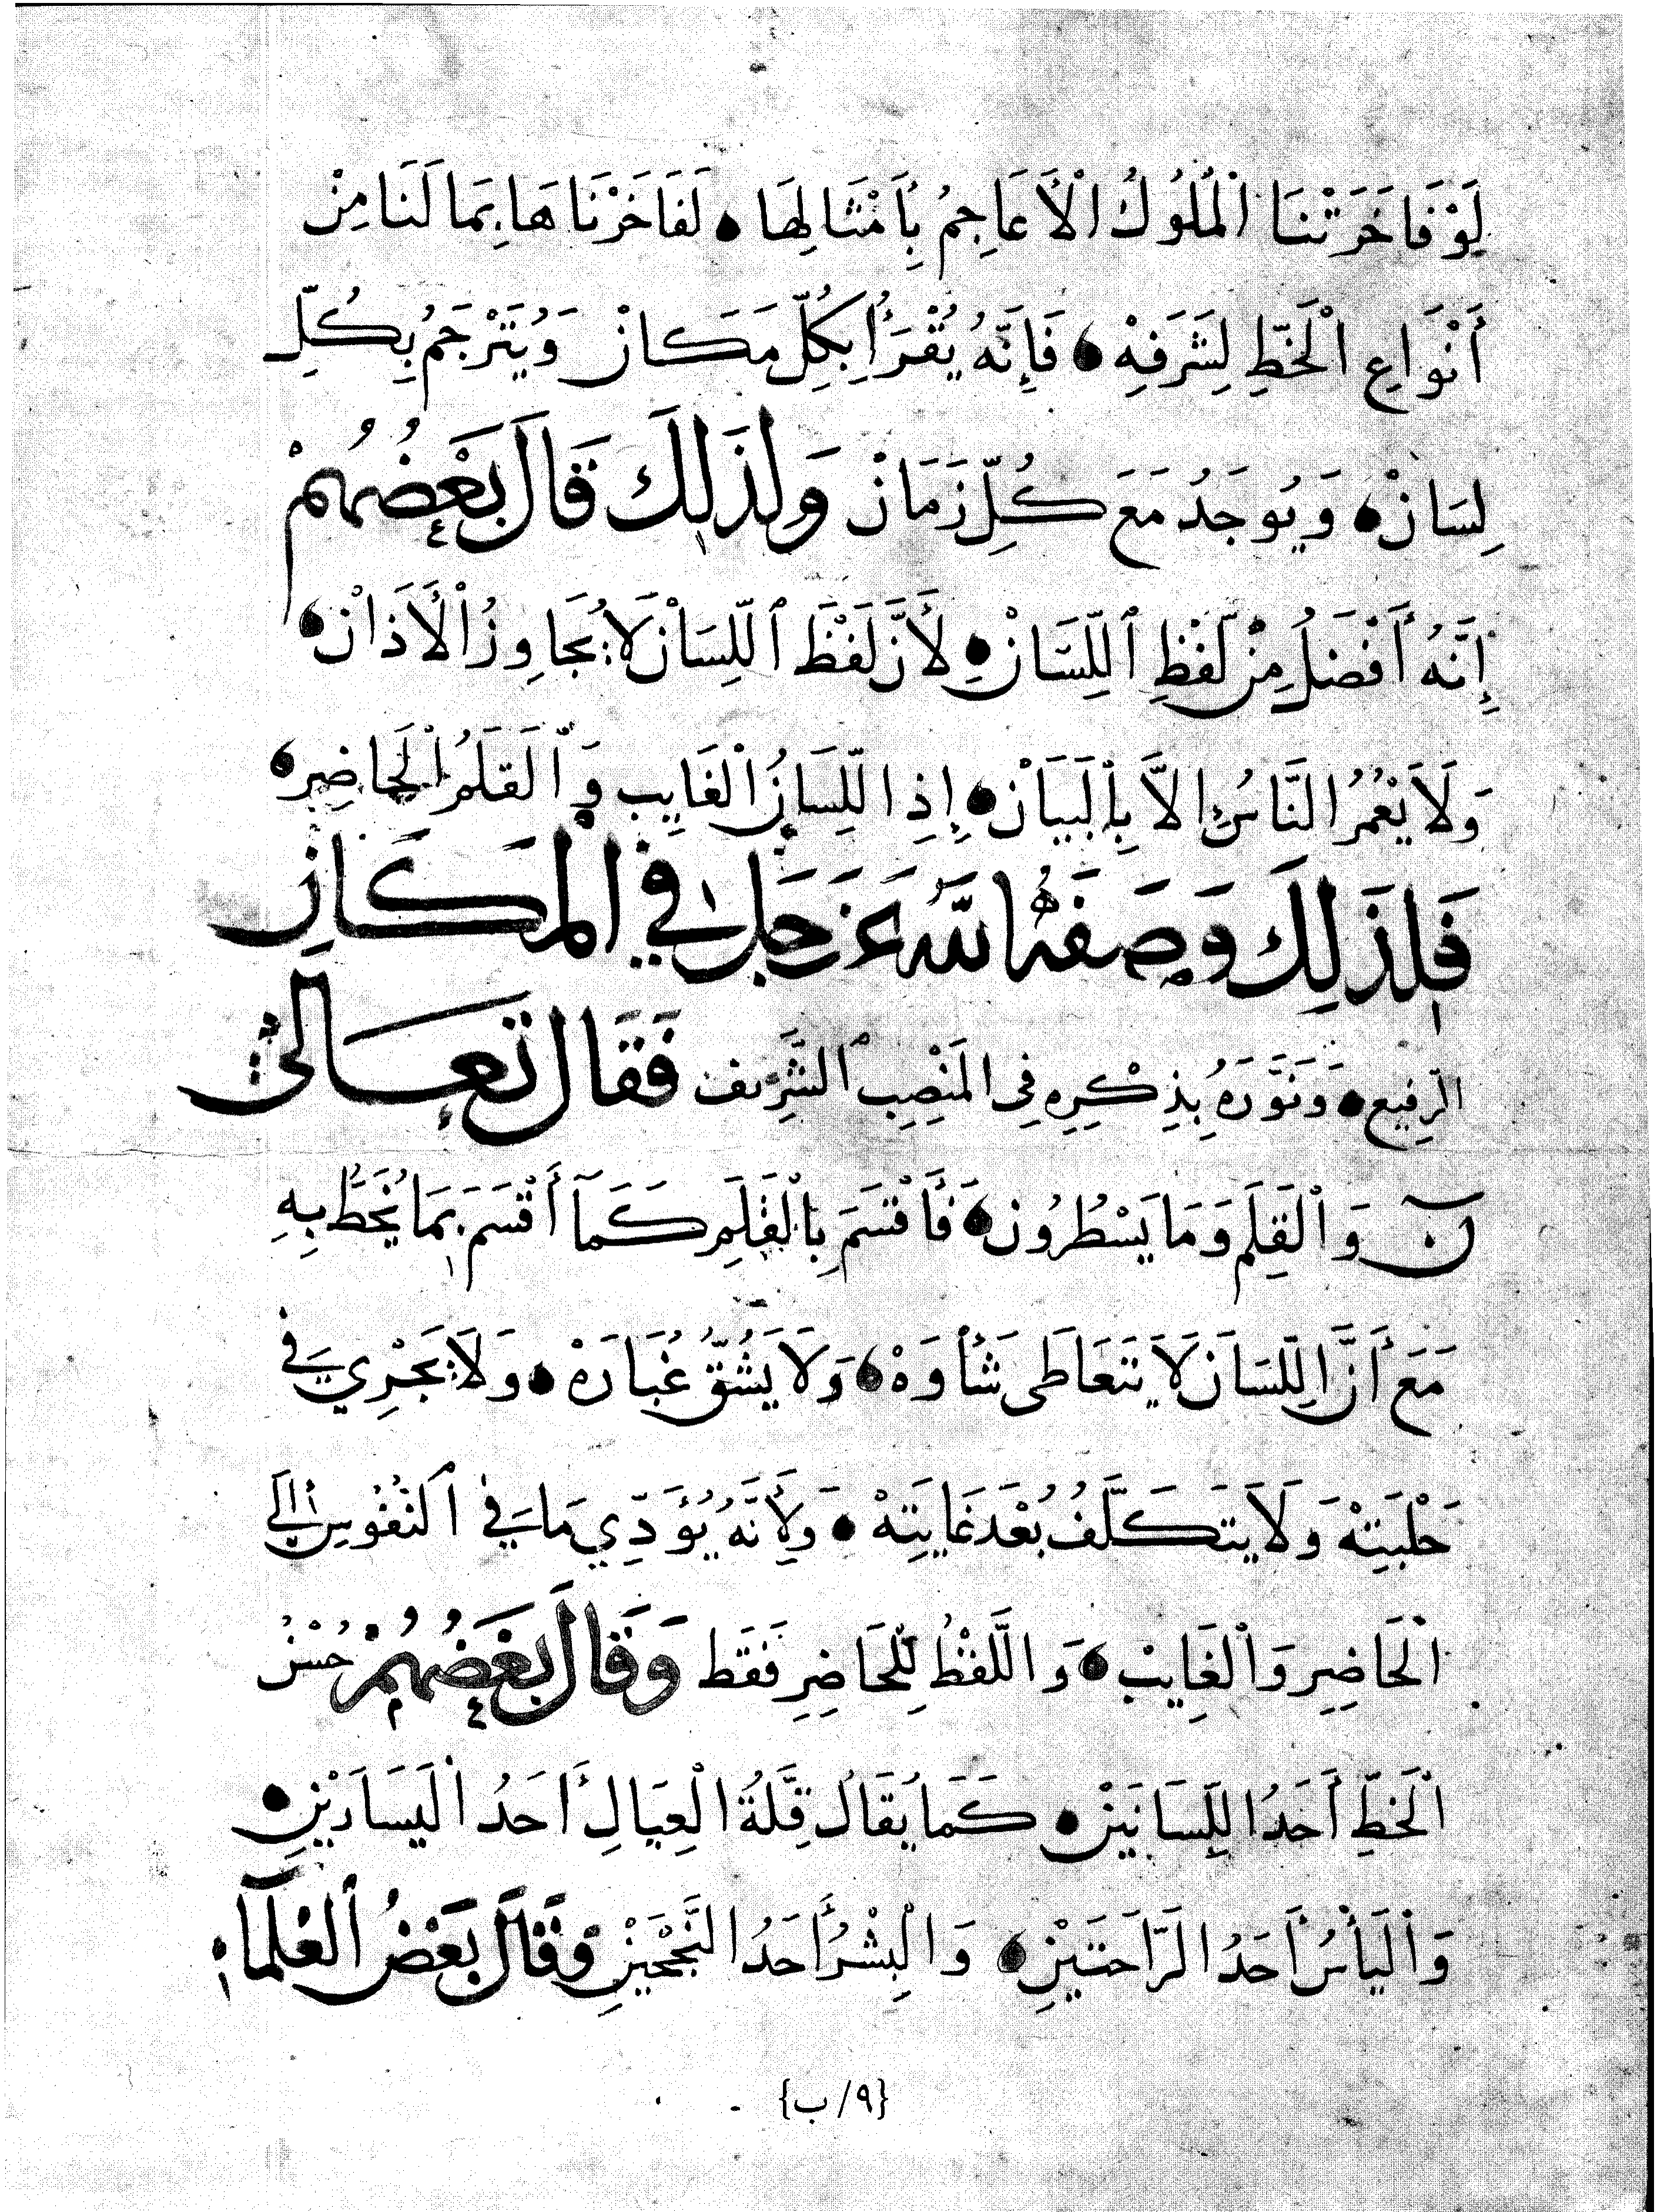 لَوْ فَاخَرَتْنَا الْمُلُوكُ الْأَعَاجِمُ بِأَمْثَالِهَا لَفَاخَرْنَاهَا بِمَا لَنَا مِنْ
أَنْوَاعِ الْخَطِّ لِشَرَفِهْ فَإِنَّهُ يُقْرَأُ بِكُلِّ مَكَانْ وَيُتَرْجَمُ بِكُلِّ
لِسَانْ وَيُوجَدُ مَعَ كُلِّ زَمَانْ وَلِذَلِكَ قَالَ بَعْضُهُمْ
إِنَّهُ أَفْضَلُ مِنْ لَفْظِ اللِّسَانْ لِأَنَّ لَفْظَ اللِّسَانْ لَا يُجَاوِزُ الْأَذَانْ
وَلَا يَعُمُّ النَّاسَ إِلَّا بِالْبَيَانْ إِذِ اللِّسَانُ الْغَايِب وَالْقَلَمُ الْحَاضِر
فَلِذَلِكَ وَصَفَهُ اللَّهُ عَزَّ وَجَلَّ فِي الْمَكَانِ
الرَّفِيعِ وَنَوَّرَهُ بِذِكْرِهِ فِي الْمَنْصِبِ الشَّرِيف فَقَالَ تَعَالَى
ن وَالْقَلَمِ وَمَا يَسْطُرُون فَأَقْسَمَ بِالْقَلَمِ كَمَا أَقْسَمَ بِمَا يُخَطُّ بِهِ
مَعَ أَنَّ اللِّسَانَ لَا يَتَعَاطَى شَأْوَهْ وَلَا يَشُقُّ غُبَارَهْ وَلَا يَجْرِي فِي
حَلْبَتِهْ وَلَا يَتَكَلَّفُ بُعْدَ غَايَتِهْ وَلِأَنَّهُ يُؤَدِّي مَا فِي النُّفُوسِ إِلَى
الْحَاضِرِ وَالْغَايِبْ وَاللَّفْظُ لِلْحَاضِرِ فَقَط وَقَالَ بَعْضُهُمْ حُسْنُ
الْخَطِّ أَحَدُ اللِّسَانَيْنْ كَمَا يُقَالُ قِلَّةُ الْعِيَالِ أَحَدُ الْيَسَارَيْنِ
وَالْيَأْسُ أَحَدُ الرَّاحَتَيْنِ وَالْبِشْرُ أَحَدُ النُّجْحَيْنِ وَقَالَ بَعْضُ الْعُلَمَاءِ
{٩/ب}